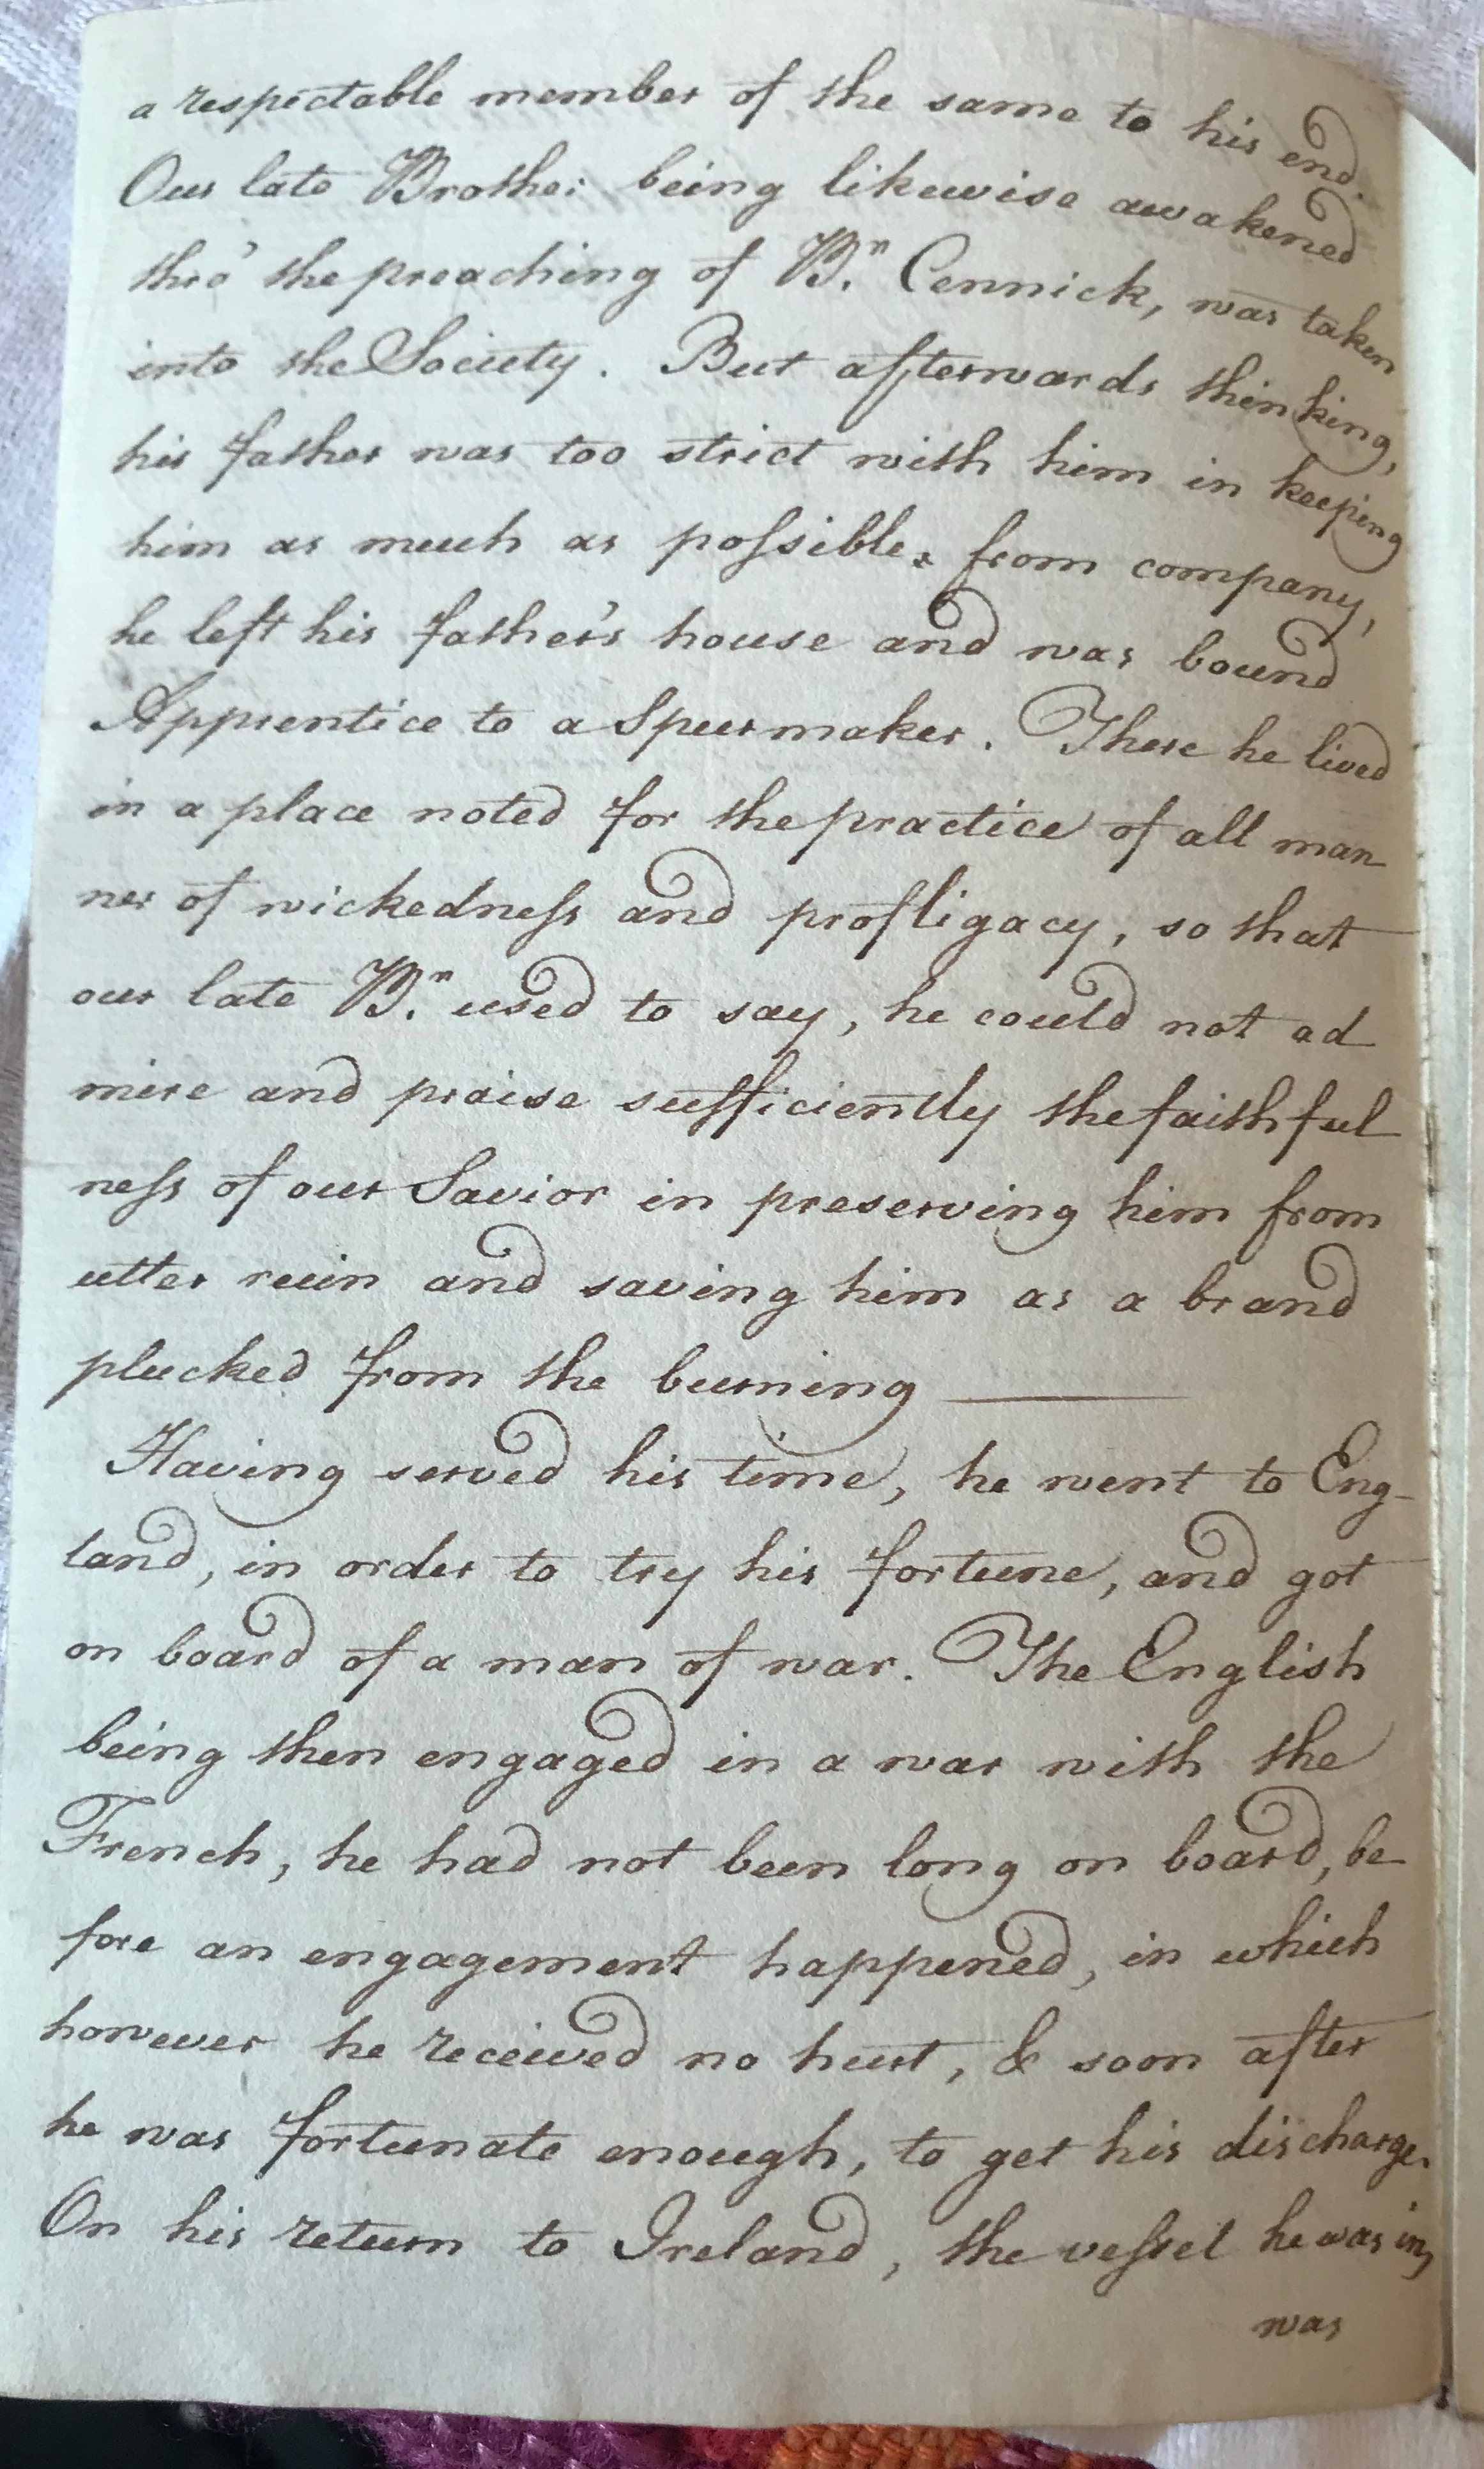 a respectable member of the same to his end.
Our late Brother being likewise awakened
thro' the preaching of Br. Cennick, was taken
into the Society. But afterwards thinking,
his father was too strict with him in keeping
him as much as possible, from company,
he left his father's house and was bound
Apprentice to a Spurmaker. There he lived
in a place noted for the practice of all man
ner of wickedness and profligacy, so that
our late Br. used to say, he could not ad
mire and praise sufficiently the faithful
ness of our Savior in preserving him from
utter ruin and saving him as a brand
plucked from the burning
Having served his time, he went to Eng-
land, in order to try his fortune, and got
on board of a man of war. The English
being then engaged in a war with the
French, he had not been long on board, be
fore an engagement happened, in which
however he received no hurt, & soon after
he was fortunate enough, to get his discharge.
On his return to Ireland, the vessel he was in,
was